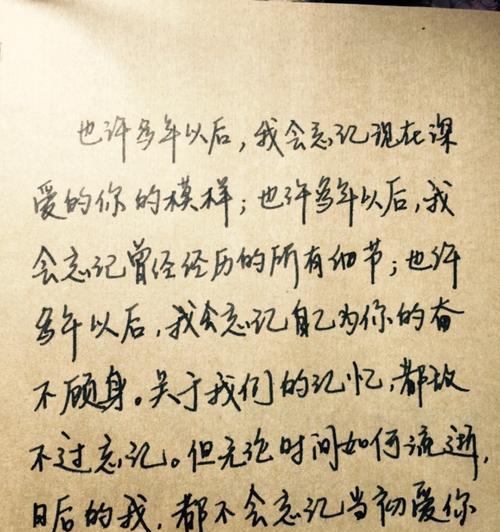 也许多年以后，我会忘记现在深
爱的你的模样；也许多年以后，我
会忘记曾经经历的所有细节；也许
多年以后，我会忘记自己为你的奋
不顾身。关于我们的记忆，都敌
不过忘记。但无论时间如何流逝，
日后的我，都不会忘记当初爱你